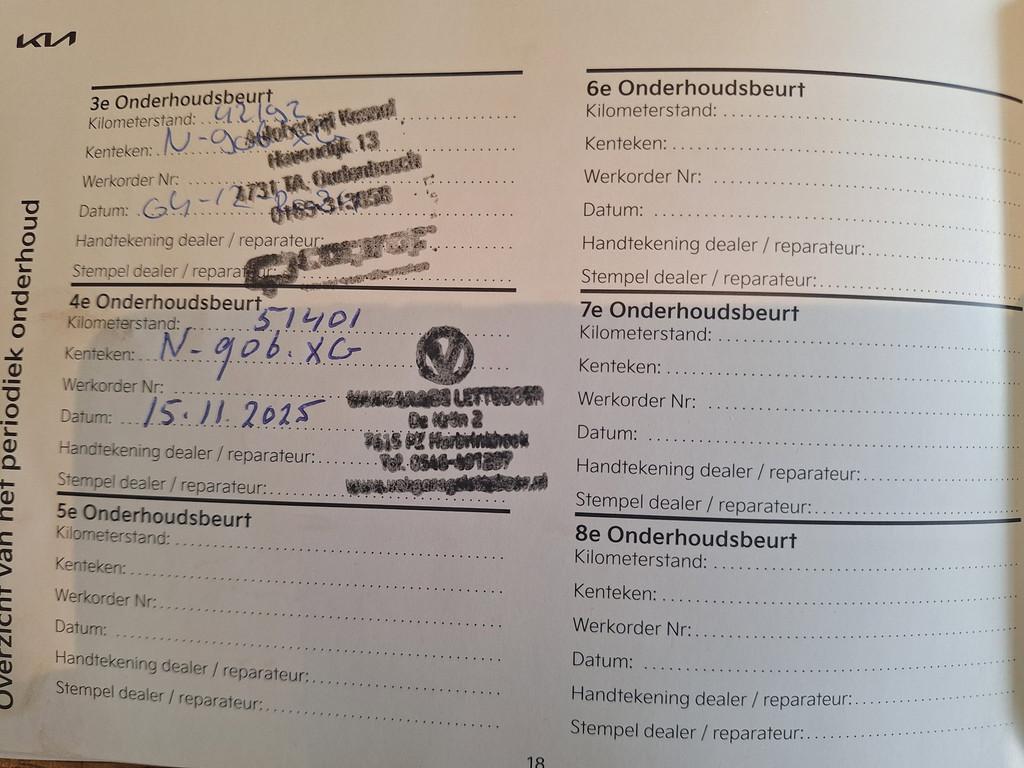 KIA
Overzicht van het periodiek onderhoud
3e Onderhoudsbeurt
Kilometerstand: 42192
Kenteken: N-906.XG
Werkorder Nr:
Datum: 04-12-
Handtekening dealer / reparateur:
Stempel dealer / reparateur:
Havendijk 13
4731 TA, Oudenbosch
0165-313058
4e Onderhoudsbeurt
Kilometerstand: 51401
Kenteken: N-906.XG
Werkorder Nr:
Datum: 15.11.2025
Handtekening dealer / reparateur:
Stempel dealer / reparateur:
De Krön 2
7615 PZ Harbrinkhoek
Tel. 0546-
5e Onderhoudsbeurt
Kilometerstand:
Kenteken:
Werkorder Nr:
Datum:
Handtekening dealer / reparateur:
Stempel dealer / reparateur:
6e Onderhoudsbeurt
Kilometerstand:
Kenteken:
Werkorder Nr:
Datum:
Handtekening dealer / reparateur:
Stempel dealer / reparateur:
7e Onderhoudsbeurt
Kilometerstand:
Kenteken:
Werkorder Nr:
Datum:
Handtekening dealer / reparateur:
Stempel dealer / reparateur:
8e Onderhoudsbeurt
Kilometerstand:
Kenteken:
Werkorder Nr:
Datum:
Handtekening dealer / reparateur:
Stempel dealer / reparateur:
18